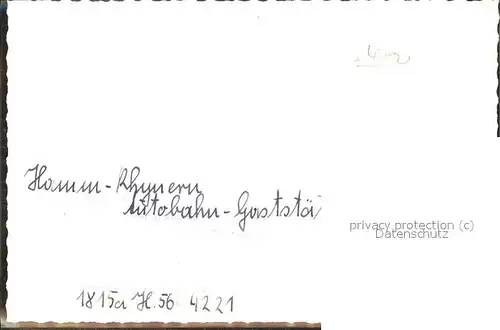 Hamm-Rhynern
Autobahn-Gaststä
privacy protection (c)
Datenschutz
1815a H.56 4221